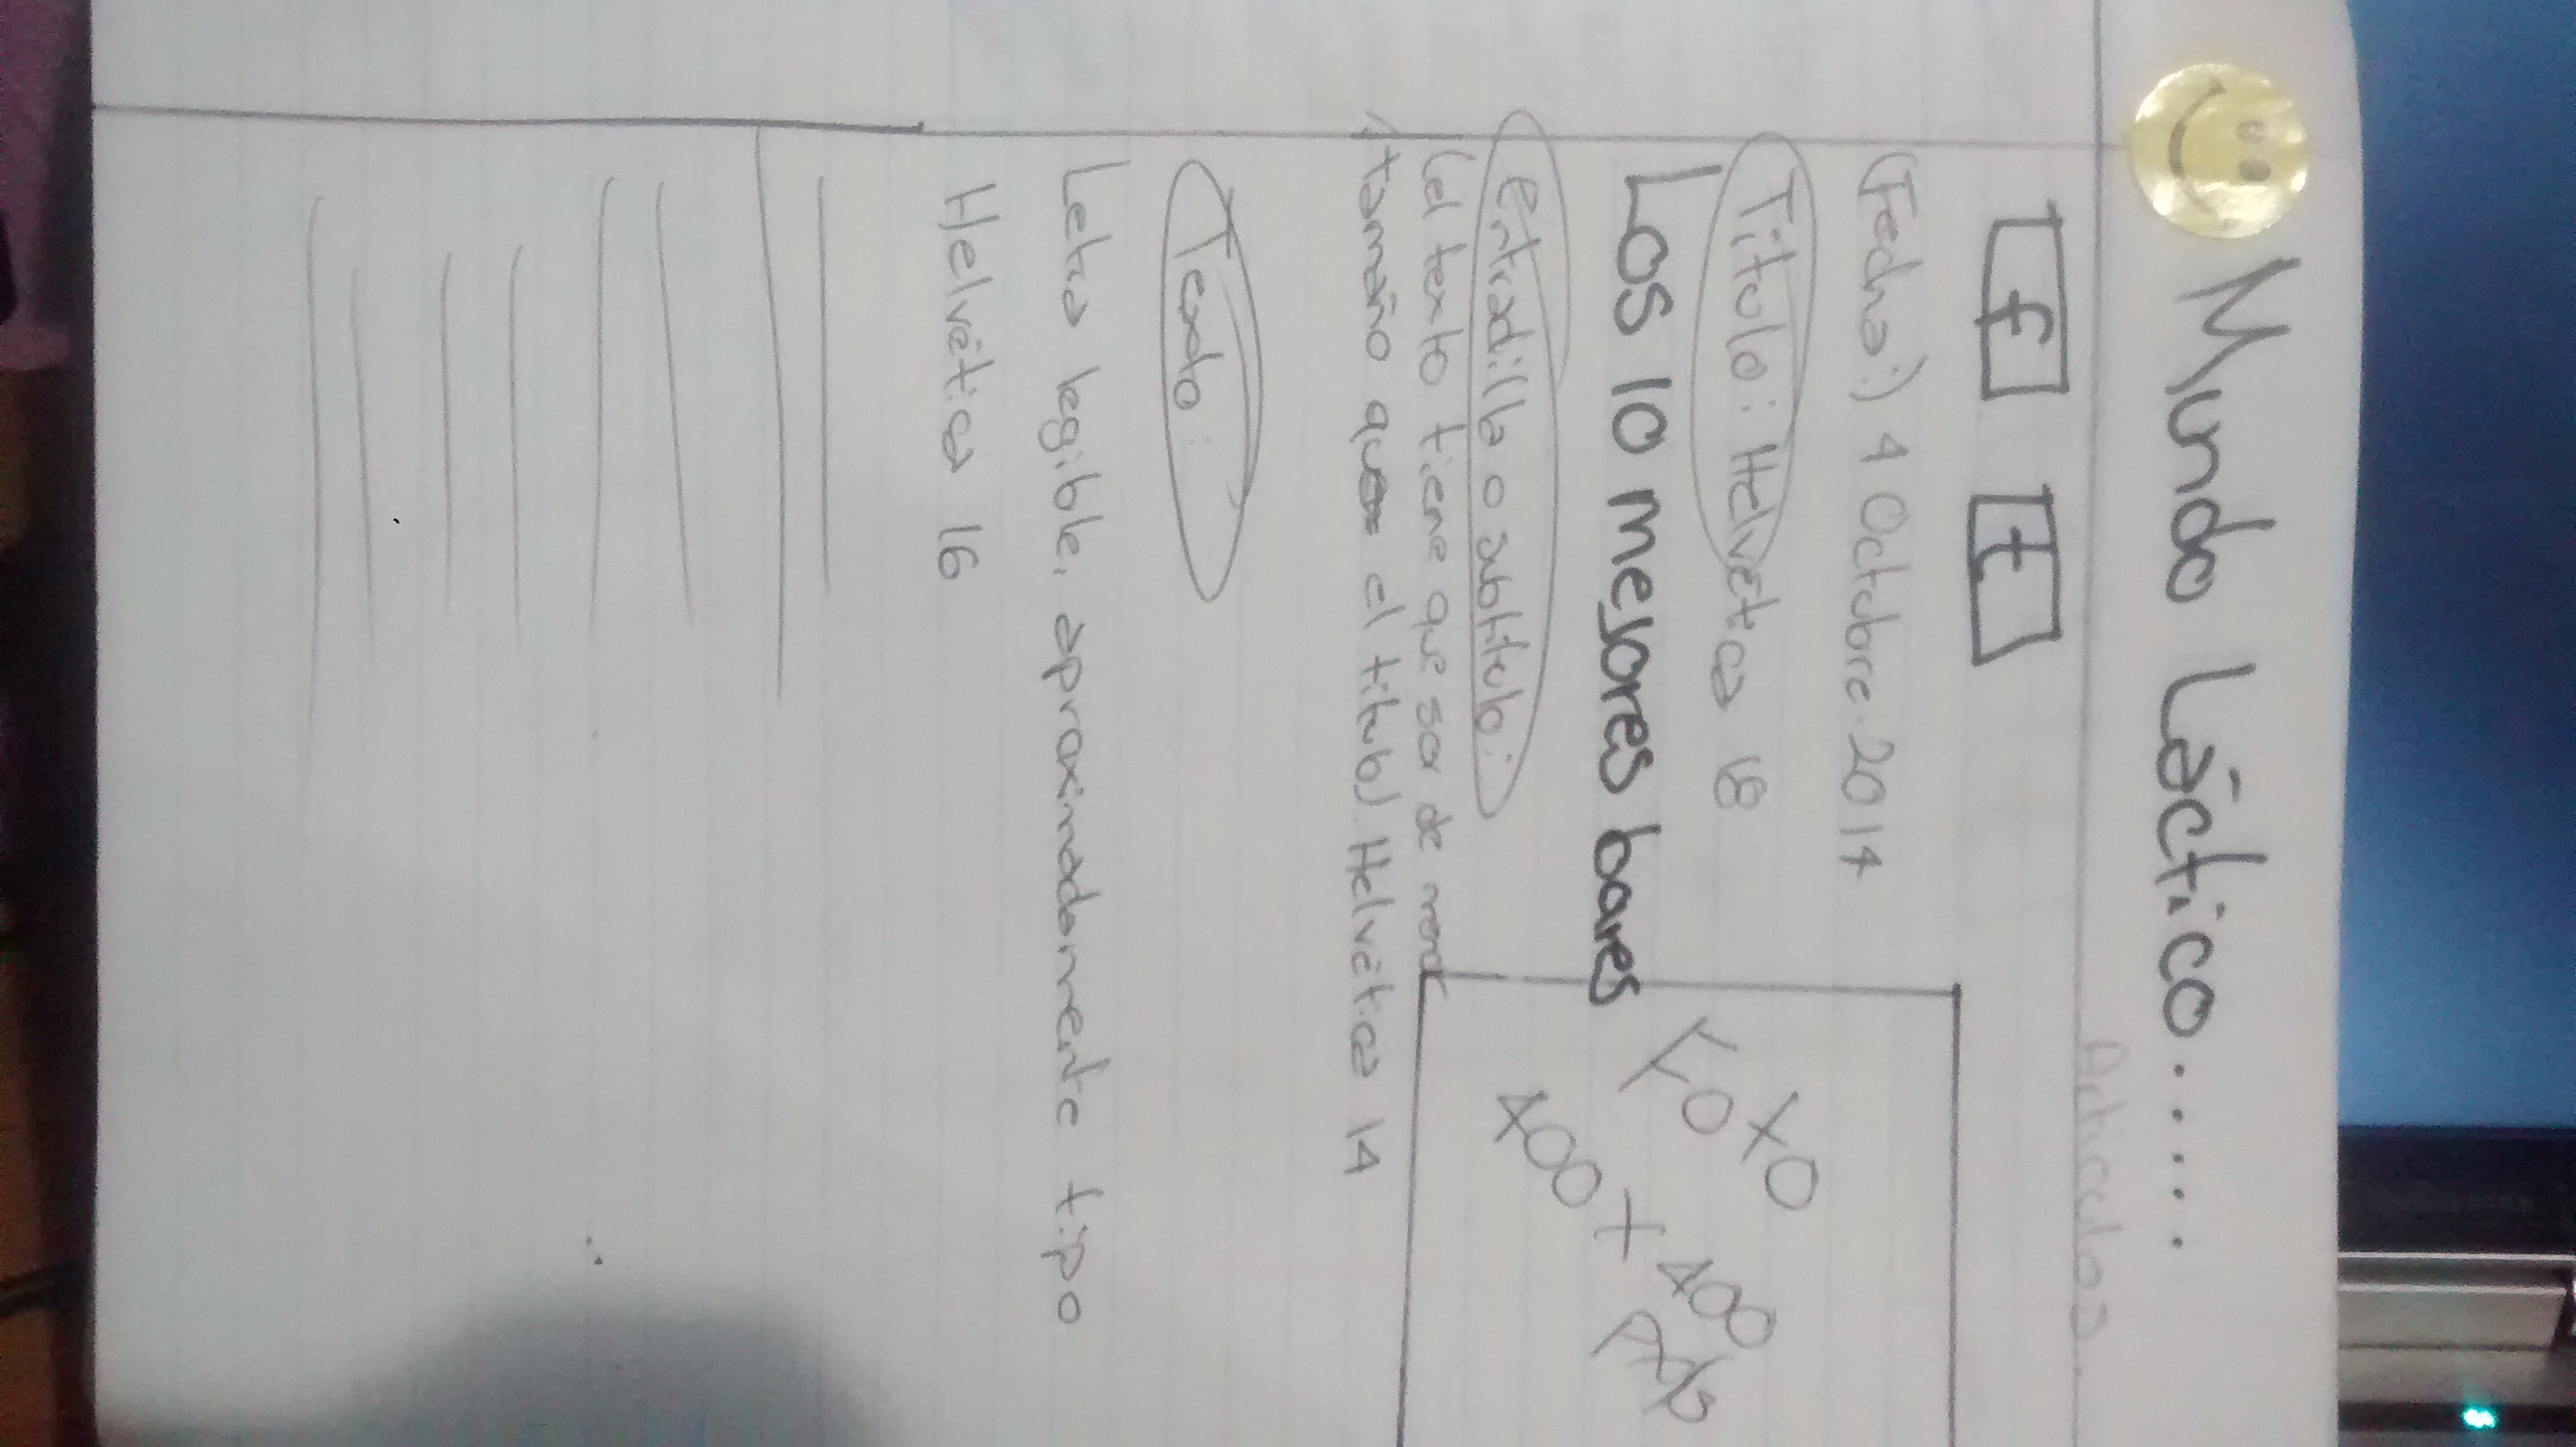 Mundo Láctico......
Artículos
f t
(Fecha:) 4 Octubre 2014
Titulo: Helvética 18
Los 10 mejores bares
entradilla o subtitulo:
(el texto tiene que ser de menor
tamaño que el titulo) Helvética 14
FOTO
400 + 400
Texto:
Letra legible, aproximadamente tipo
Helvética 16